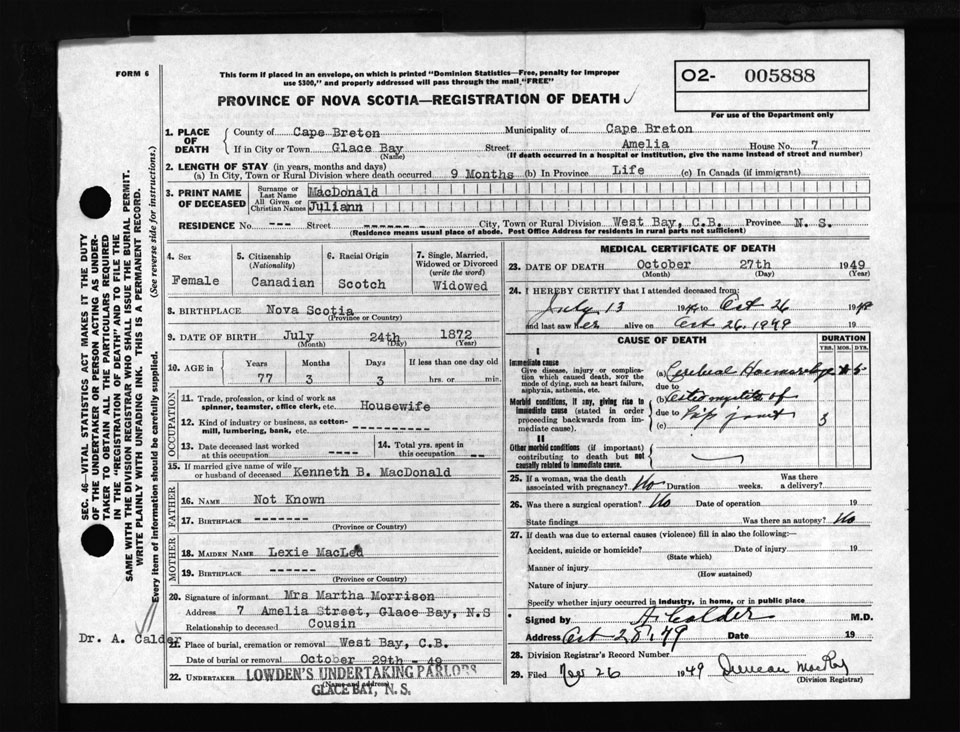 FORM 6
This form if placed in an envelope, on which is printed "Dominion Statistics—Free, penalty for improper
use $300," and properly addressed will pass through the mail "FREE"
PROVINCE OF NOVA SCOTIA—REGISTRATION OF DEATH
02- 005888
For use of the Department only
1. PLACE OF DEATH
County of Cape Breton Municipality of Cape Breton
If in City or Town Glace Bay Street Amelia House No. 7
(Name) (If death occurred in a hospital or institution, give the name instead of street and number)
2. LENGTH OF STAY (in years, months and days)
(a) In City, Town or Rural Division where death occurred 9 Months (b) In Province Life (c) In Canada (if immigrant)
3. PRINT NAME OF DECEASED
Surname or Last Name MacDonald
All Given or Christian Names Juliann
RESIDENCE No. --- Street ------ - City, Town or Rural Division West Bay, C.B. Province N. S.
(Residence means usual place of abode. Post Office Address for residents in rural parts not sufficient)
4. Sex
Female
5. Citizenship
(Nationality)
Canadian
6. Racial Origin
Scotch
7. Single, Married,
Widowed or Divorced
(write the word)
Widowed
8. BIRTHPLACE Nova Scotia
(Province or Country)
9. DATE OF BIRTH July 24th 1872
(Month) (Day) (Year)
10. AGE in Years Months Days If less than one day old
77 3 3 hrs. or min.
OCCUPATION
11. Trade, profession, or kind of work as
spinner, teamster, office clerk, etc. Housewife
12. Kind of industry or business, as cotton-
mill, lumbering, bank, etc. ------------
13. Date deceased last worked
at this occupation ----
14. Total yrs. spent in
this occupation --
15. If married give name of wife
or husband of deceased Kenneth B. MacDonald
FATHER
16. NAME Not Known
17. BIRTHPLACE -------
(Province or Country)
MOTHER
18. MAIDEN NAME Lexie
19. BIRTHPLACE ------
(Province or Country)
20. Signature of informant Mrs Martha Morrison
Address 7 Amelia Street, Glace Bay, N.S
Relationship to deceased Cousin
Dr. A. Calder
21. Place of burial, cremation or removal West Bay, C.B.
Date of burial or removal October 29th - 49
22. UNDERTAKER LOWDEN'S UNDERTAKING PARLORS
(Name and address)
GLACE BAY, N. S.
MEDICAL CERTIFICATE OF DEATH
23. DATE OF DEATH October 27th 1949
(Month) (Day) (Year)
24. I HEREBY CERTIFY that I attended deceased from:
July 13 1949 to Oct 26 1949
and last saw her alive on Oct 26, 1949 19
CAUSE OF DEATH
DURATION
YRS. MOS. DYS.
I
Immediate cause
Give disease, injury or complica-
tion which caused death, not the
mode of dying, such as heart failure,
asphyxia, asthenia, etc.
(a) Cerebral Haemorrhage
due to
Morbid conditions, if any, giving rise to
immediate cause (stated in order
proceeding backwards from im-
mediate cause).
(b) Osteomyelitis of
due to hip joint
(c) 3
II
Other morbid conditions (if important)
contributing to death but not
causally related to immediate cause.
25. If a woman, was the death
associated with pregnancy? No Duration weeks. Was there
a delivery?
26. Was there a surgical operation? No Date of operation 19
State findings Was there an autopsy? No
27. If death was due to external causes (violence) fill in also the following:—
Accident, suicide or homicide? Date of injury 19
(State which)
Manner of injury
(How sustained)
Nature of injury
Specify whether injury occurred in industry, in home, or in public place
Signed by A Calder M.D.
Address Oct 28, 49 Date 19
28. Division Registrar's Record Number
29. Filed Nov 26 1949 Duncan MacKay
(Division Registrar)
SEC. 46—VITAL STATISTICS ACT MAKES IT THE DUTY
OF THE UNDERTAKER OR PERSON ACTING AS UNDER-
TAKER TO OBTAIN ALL THE PARTICULARS REQUIRED
IN THE "REGISTRATION OF DEATH" AND TO FILE THE
SAME WITH THE DIVISION REGISTRAR WHO SHALL ISSUE THE BURIAL PERMIT.
WRITE PLAINLY WITH UNFADING INK. THIS IS A PERMANENT RECORD.
Every item of information should be carefully supplied. (See reverse side for instructions.)